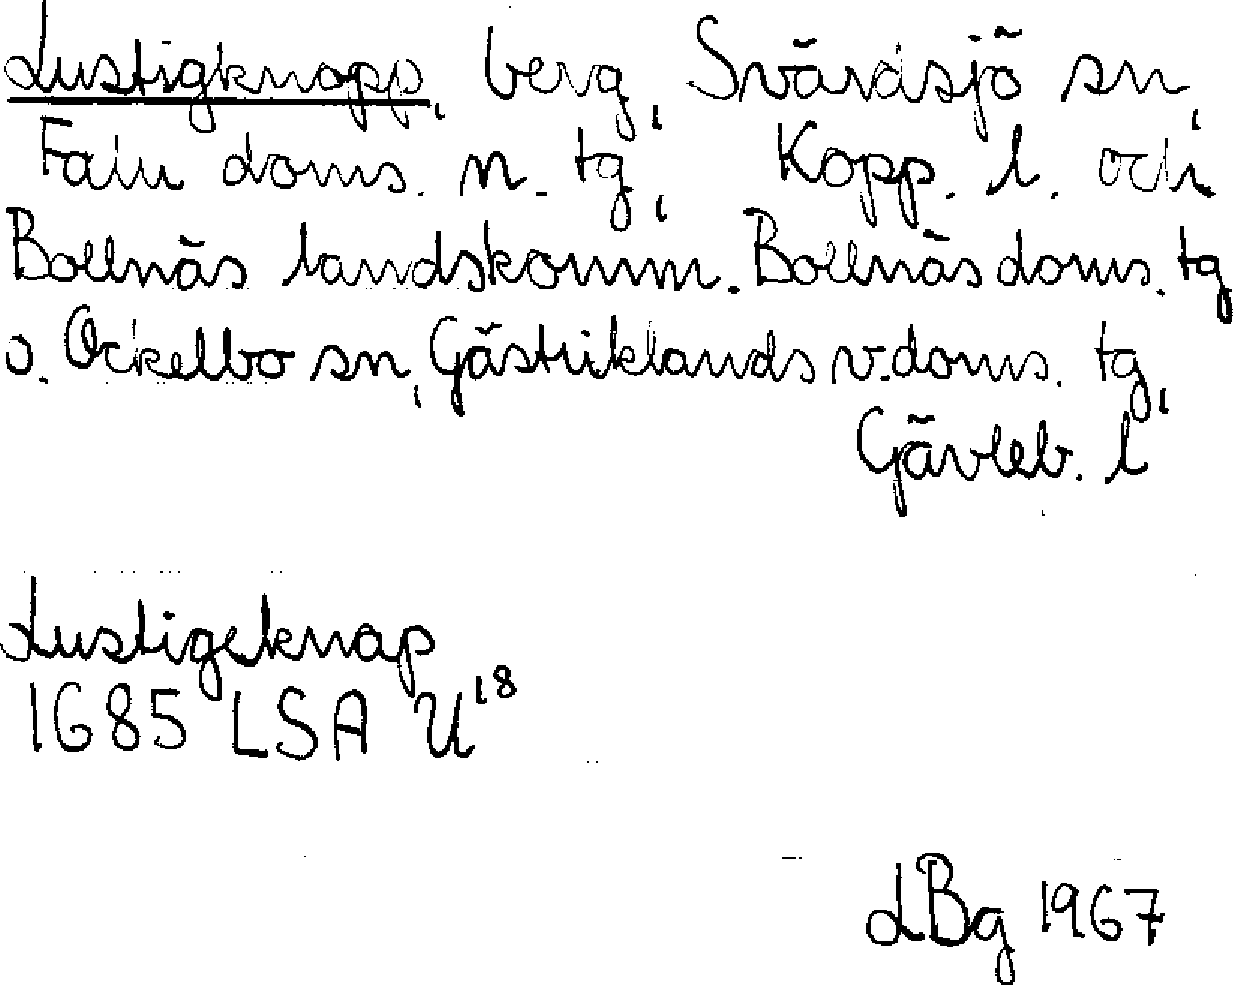 Lustigknopp, berg, Svärdsjö sn,
Falu doms. n. tg, Kopp. l. och
Bollnäs landskomm. Bollnäs doms. tg
o. Ockelbo sn, Gästriklands v. doms. tg,
Gävleb. l
Lustigeknap
1685 LSA U18
LBg 1967